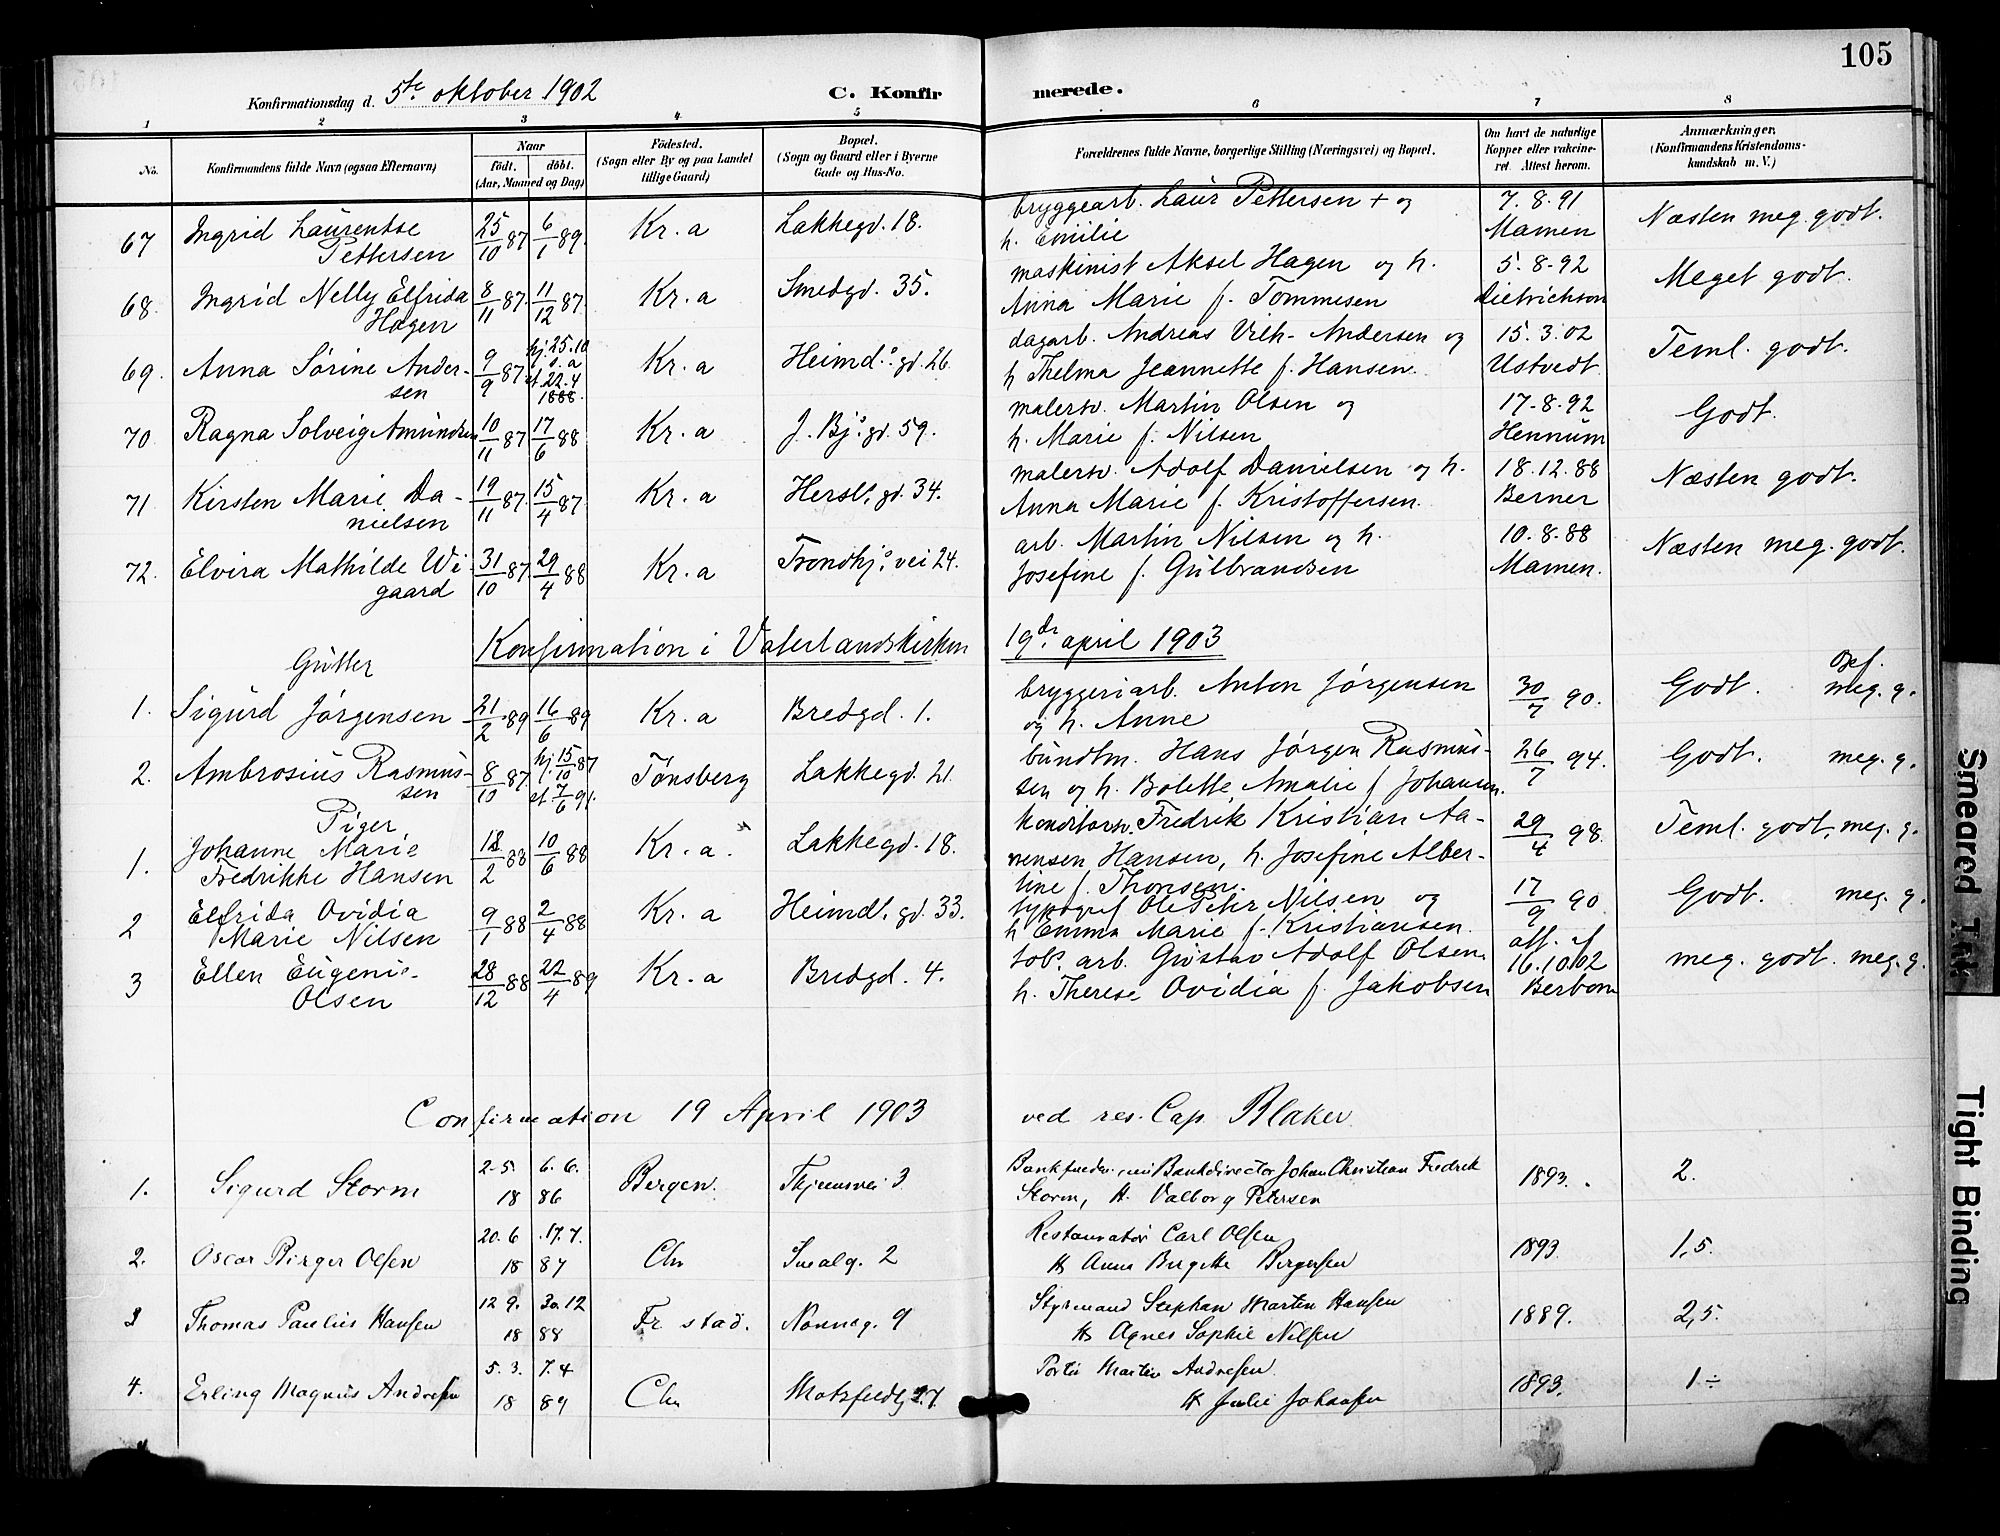 105
Konfirmationsdag d. 5te oktober 1902
C. Konfirmerede.
1 2 3 4 5 6 7 8
No.
Konfirmandens fulde Navn (ogsaa Efternavn)
Naar
født. døbt.
(Aar, Maaned og Dag)
Fødested.
(Sogn eller By og paa Landet
tillige Gaard)
Bopæl.
(Sogn og Gaard eller i Byerne
Gade og Hus-No.
Forældrenes fulde Navne, borgerlige Stilling (Næringsvei) og Bopæl.
Om havt de naturlige
Kopper eller vakcine-
ret. Attest herom.
Anmærkninger,
(Konfirmandens Kristendoms-
kundskab m. V.)
67 Ingrid Laurentse 25/10 87 6/1 89. Kr.a Lakkegd. 18. bryggearb. Laur Pettersen + og 7.8.91 Næsten meg. godt.
Pettersen h. Emilie Mamen
68. Ingrid Nelly Elfrida 8/11 87. 11/12 87. Kr.a Smedgd. 35. maskinist Aksel Hagen og h. 5.8.92 Meget godt.
Hagen Anna Marie f. Tommesen Dietrichson
69. Anna Sørine Ander- 9/9 87 hj. 25.10 s.a st. 22.4 1888. Kr.a Heimd. gd. 26 dagarb. Andreas Vilh. Andersen og 15.3.02 Teml. godt.
sen h Thelma Jeannette f. Hansen. Ustvedt
70. Ragna Solveig Amundsen 10/11 87 17/6 88 Kr.a J. Bj. gd. 59. malersv. Martin Olsen og 17.8.92 Godt.
h. Marie f. Nilsen Hennum
71 Kirsten Marie Da- 19/11 87. 15/4 87 Kr.a Hersl. gd. 34. malersv. Adolf Danielsen og h. 18.12.88 Næsten godt.
nielsen Anna Marie f. Kristoffersen. Berner
72. Elvira Mathilde Wi 31/10 87. 29/4 88 Kr.a Trondhj. vei 24. arb. Martin Nilsen og h. 10.8.88 Næsten meg. godt.
gaard Josefine f. Gulbrandsen Mamen.
Konfirmation i Vaterlandskirken 19de april 1903
Gutter Opf.
1. Sigurd Jørgensen 21/2 89 16/6 89 Kr.a Bredgd. 1. bryggeriarb. Anton Jørgensen 30/7 90. Godt. meg. g.
og h. Anne
2. Ambrosius Rasmus- 8/10 87 hj 15/10 87 st 7/6 91. Tønsberg Lakkegd. 21. bundtm. Hans Jørgen Rasmus- 26/7 94. Godt. meg. g.
sen sen og h. Bolette Amalie f Johansen.
Piger
1. Johanne Marie 18/2 88 10/6 88 Kr.a. Lakkegd. 18. konditorsv. Fredrik Kristian Aa- 29/4 98. Teml. godt, meg. g.
Fredrikke Hansen nensen Hansen, h. Josefine Alber-
tine f. Thonsen.
2 Elfrida Ovidia 9/1 88 2/4 88 Kr.a Heimdl. gd. 33. typograf Ole Petr Nilsen og 17/9 90 Godt. meg. g.
Marie Nilsen h Emma Marie f. Kristiansen.
3 Ellen Eugenie 28/12 88 22/4 89 Kr.a Bredgd. 4. tob. arb. Gustav Adolf Olsen. att. af 16.10.02 meg. godt. meg. g.
Olsen h. Therese Ovidia f. Jakobsen
Confirmation 19 April 1903 ved res. Cap. Blaker
1. Sigurd Storm 2.5. 6.6. 18 86 Bergen. 3 Bankdirector Johan Christian Fredrik 1893. 2.
Storm, H. Valborg Petersen
2. Oscar Birger Olsen 20.6 .17.7. 18 87 Chr 2 Restauratør Carl Olsen 1893. 1,5.
H Anna Birgitte Bergersen
3 Thomas Paulius Hansen 12 9. 30.12 18 88 Fr stad. Nonneg. 9 Styrmand Stephan Martin Hansen 1889. 2,5.
H Agnes Sophie Nilsen
4. Erling Magnus Andresen 5.3. 7.4 18 89 Chr Motzfeldtg 27 Martin Andresen 1893. 1÷
H Julie Johansen
Smeared Ink
Tight Binding